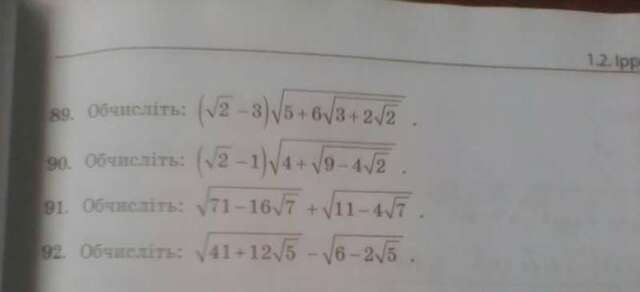 1.2. Ірр
89. Обчисліть: (√2 − 3)√(5 + 6√(3 + 2√2)) .
90. Обчисліть: (√2 − 1)√(4 + √(9 − 4√2)) .
91. Обчисліть: √(71 − 16√7) + √(11 − 4√7) .
92. Обчисліть: √(41 + 12√5) − √(6 − 2√5) .